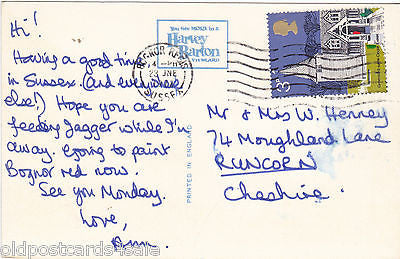 Hi!
Having a good time
in Sussex. (And everywhere
else!) Hope you are
feeding Jagger while I'm
away. Going to paint
Bognor red now.
See you Monday.
Love,
You are INDEBTED to a
Harvey
Barton
VIEWCARD
BOGNOR REGIS
23 JNE
W. SUSSEX
PRINTED IN ENGLAND
Mr & Mrs W. Henney
74 Moughland Lane
RUNCORN
Cheshire.
oldpostcards4sale